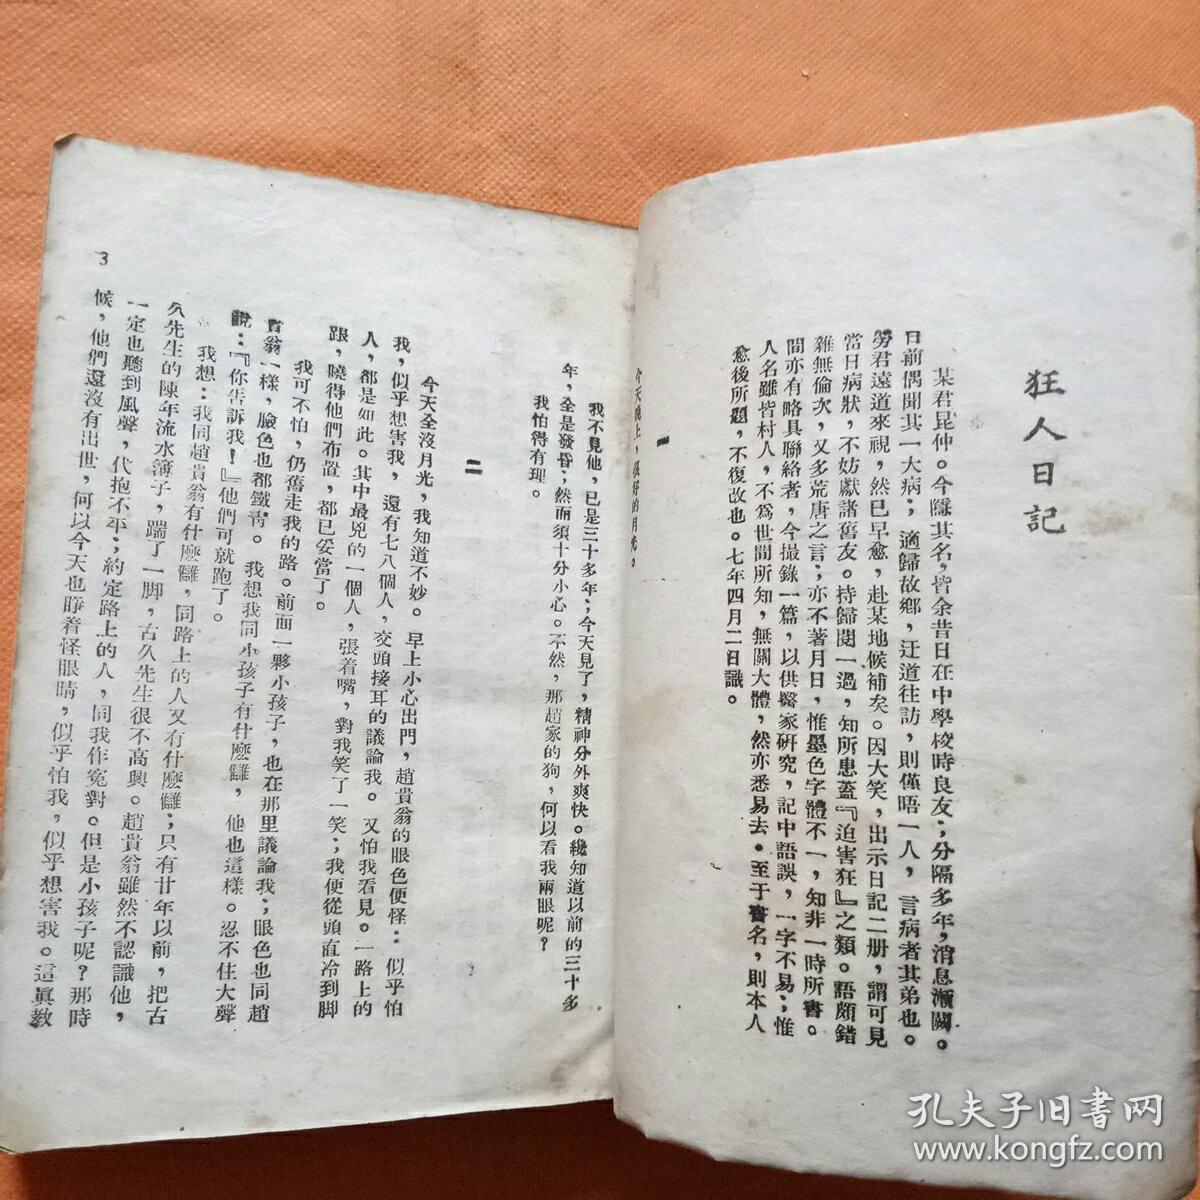 狂人日記
某君昆仲。今隱其名，皆余昔日在中學校時良友；分隔多年，消息漸闕。
日前偶聞其一大病；適歸故鄉，迂道往訪，則僅晤一人，言病者其弟也。
勞君遠道來視，然已早愈，赴某地候補矣。因大笑，出示日記二册，謂可見
當日病狀，不妨獻諸舊友。持歸閱一過，知所患蓋『迫害狂』之類。語頗錯
雜無倫次，又多荒唐之言；亦不著月日，惟墨色字體不一，知非一時所書。
間亦有略具聯絡者，今撮錄一篇，以供醫家研究，記中語誤，一字不易；惟
人名雖皆村人，不爲世間所知，無關大體，然亦悉易去。至于書名，則本人
愈後所題，不復改也。七年四月二日識。
一
今天晚上，很好的月光。
我不見他，已是三十多年；今天見了，精神分外爽快。纔知道以前的三十多
年，全是發昏；然而須十分小心。不然，那趙家的狗，何以看我兩眼呢？
我怕得有理。
二
今天全沒月光，我知道不妙。早上小心出門，趙貴翁的眼色便怪：似乎怕
我，似乎想害我，還有七八個人，交頭接耳的議論我。又怕我看見。一路上的
人，都是如此。其中最兇的一個人，張着嘴，對我笑了一笑；我便從頭直冷到脚
跟，曉得他們布置，都已妥當了。
我可不怕，仍舊走我的路。前面一夥小孩子，也在那里議論我；眼色也同趙
貴翁一樣，臉色也都鐵靑。我想我同小孩子有什麼讎，他也這樣。忍不住大聲
說：『你吿訴我！』他們可就跑了。
我想：我同趙貴翁有什麼讎，同路上的人又有什麼讎；只有廿年以前，把古
久先生的陳年流水簿子，踹了一脚，古久先生很不高興。趙貴翁雖然不認識他，
一定也聽到風聲，代抱不平；約定路上的人，同我作寃對。但是小孩子呢？那時
候，他們還沒有出世，何以今天也睜着怪眼睛，似乎怕我，似乎想害我。這眞教
3
孔夫子旧書网
www.kongfz.com